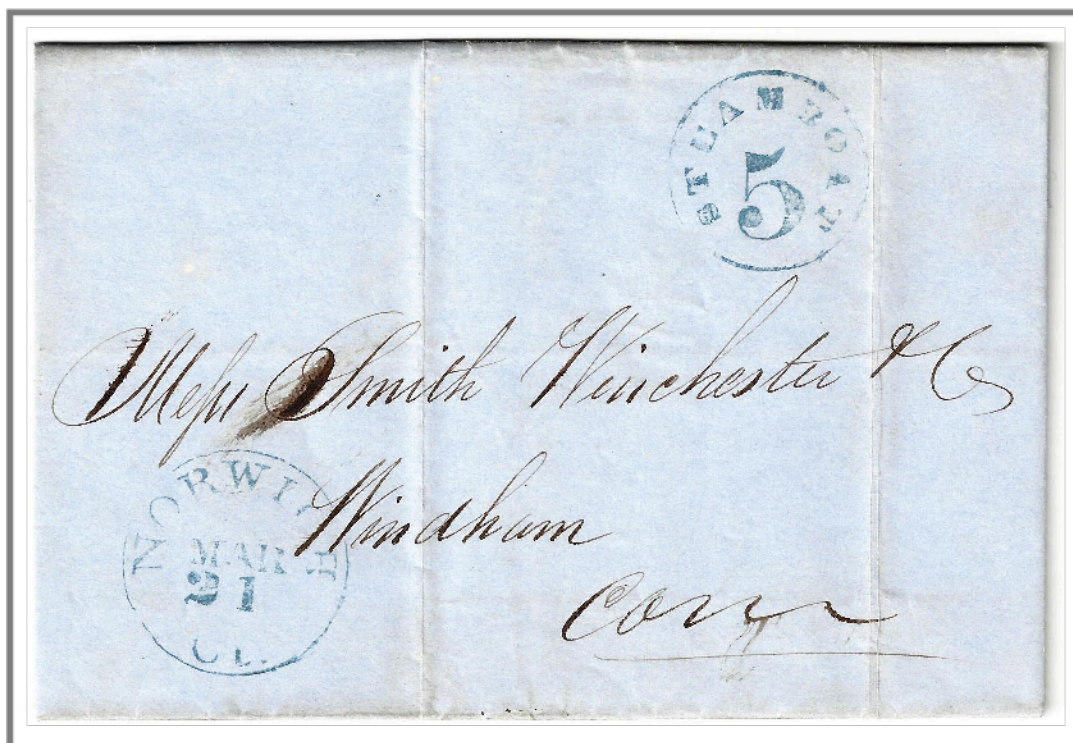 STEAMBOAT
5
Messrs Smith Winchester & Co
Windham
Conn
NORWICH
MAR
21
CT.